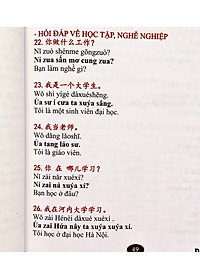 - HỎI ĐÁP VỀ HỌC TẬP, NGHỀ NGHIỆP
22. 你做什么工作？
Nǐ zuò shénme gōngzuò?
Ni zua sẩn mơ cung zua?
Bạn làm nghề gì?
23. 我是一个大学生。
Wǒ shì yígè dàxuéshēng.
Ủa sư í cưa ta xuýa sâng.
Tôi là một sinh viên đại học.
24. 我当老师。
Wǒ dāng lǎoshī.
Ủa tang lảo sư.
Tôi là giáo viên.
25. 你 在 哪儿学习？
Nǐ zài nǎr xuéxí?
Nỉ zai nả xuýa xí?
Bạn học ở đâu?
26. 我在河内大学学习。
Wǒ zài Hénèi dàxué xuéxí .
Ủa zai Hứa nây ta xuýa xuýa xí.
Tôi học ở đại học Hà Nội.
49